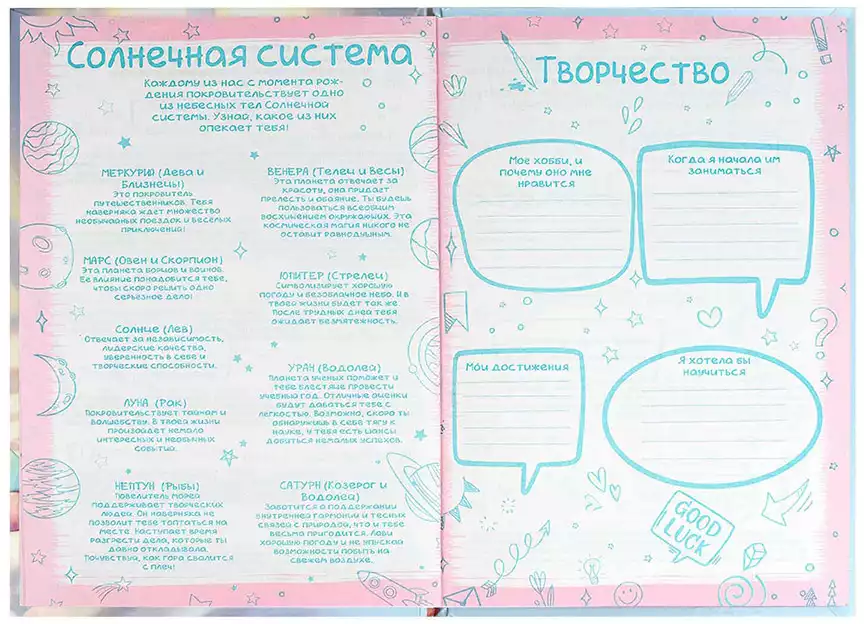 Солнечная система
Каждому из нас с момента рож-
дения покровительствует одно
из небесных тел Солнечной
системы. Узнай, какое из них
опекает тебя!
МЕРКУРИЙ (Дева и
Близнецы)
Это покровитель
путешественников. Тебя
наверняка ждет множество
необычайных поездок и веселых
приключений!
МАРС (Овен и Скорпион)
Эта планета борцов и воинов.
Ее влияние понадобится тебе,
чтобы скоро решить одно
серьезное дело!
Солнце (Лев)
Отвечает за независимость,
лидерские качества,
уверенность в себе и
творческие способности.
ЛУНА (Рак)
Покровительствует тайнам и
волшебству. В твоей жизни
произойдет немало
интересных и необычных
событий.
НЕПТУН (Рыбы)
Повелитель морей
поддерживает творческих
людей. Он наверняка не
позволит тебе топтаться на
месте. Наступает время
разгрести дела, которые ты
давно откладывала.
Почувствуй, как гора свалится
с плеч!
ВЕНЕРА (Телец и Весы)
Эта планета отвечает за
красоту, она придает
прелесть и обаяние. Ты будешь
пользоваться всеобщим
восхищением окружающих. Эта
космическая магия никого не
оставит равнодушным.
ЮПИТЕР (Стрелец)
Символизирует хорошую
погоду и безоблачное небо. И в
твоей жизни будет так же.
После трудных дней тебя
ожидает безмятежность.
УРАН (Водолей)
Планета ученых поможет и
тебе блестяще провести
учебный год. Отличные оценки
будут даваться тебе с
легкостью. Возможно, скоро ты
обнаружишь в себе тягу к
науке. У тебя есть шансы
добиться немалых успехов.
САТУРН (Козерог и
Водолей)
Заботится о поддержании
внутренней гармонии и тесных
связей с природой, что и тебе
весьма пригодится. Лови
хорошую погоду и не упускай
возможности побыть на
свежем воздухе.
Творчество
Мое хобби, и
почему оно мне
нравится
Когда я начала им
заниматься
Мои достижения
Я хотела бы
научиться
GOOD
LUCK